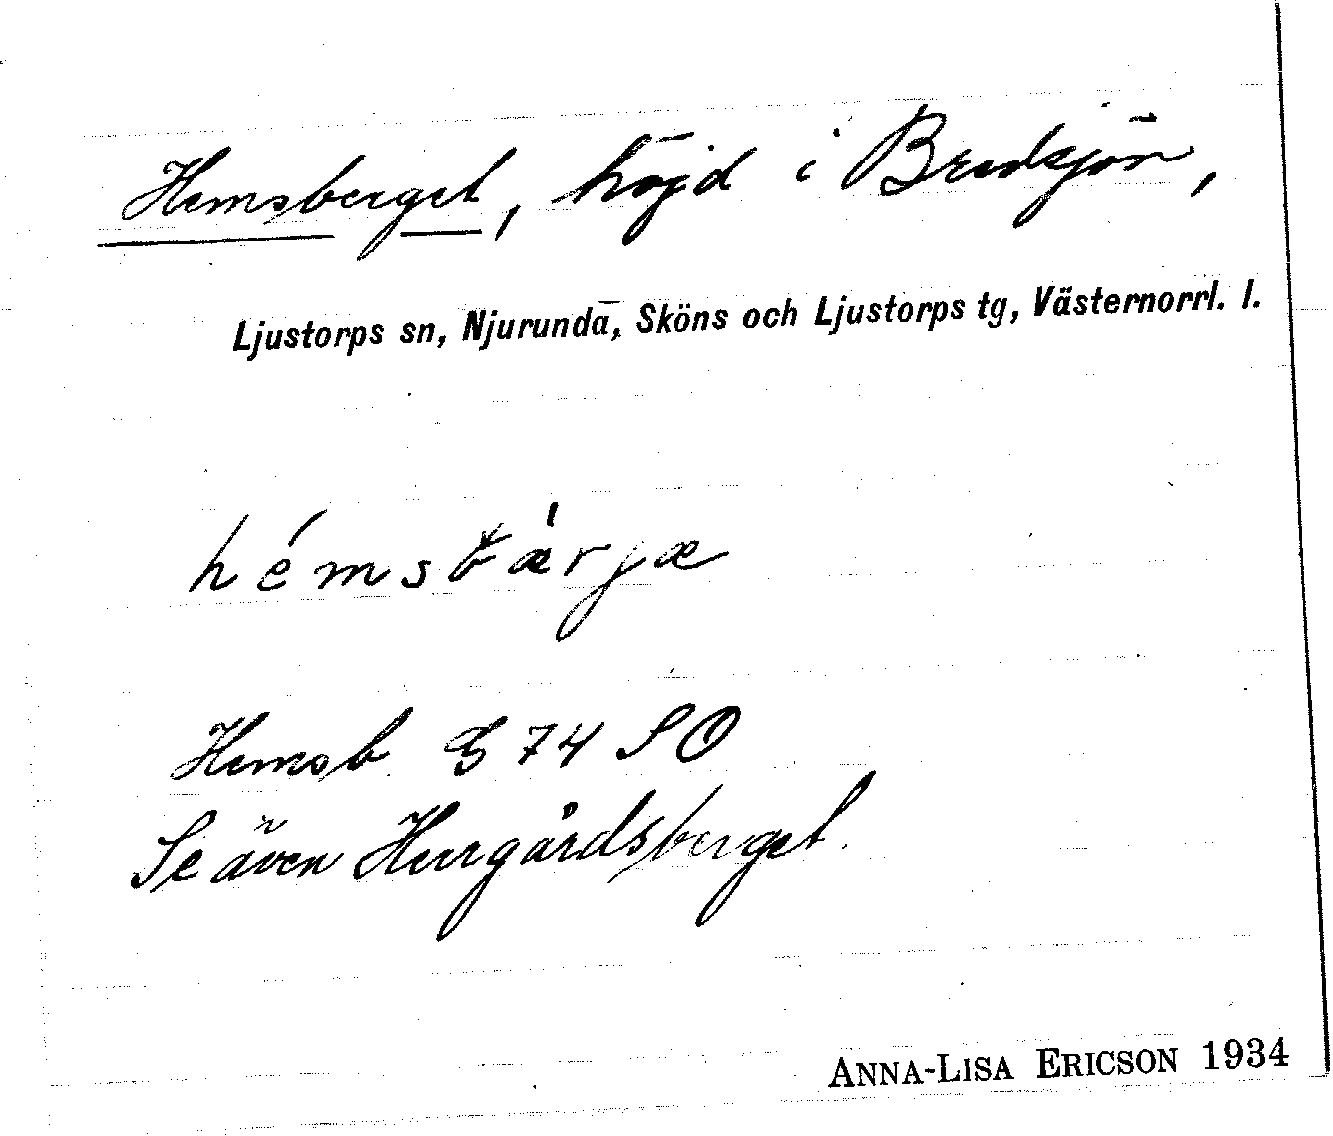 Hemsberget, höjd i Bredsjön,
Ljustorps sn, Njurunda, Sköns och Ljustorps tg, Västernorrl. l.
hémsbæ̀rjæ
Hemsb G 74 SO
Se även Herrgårdsberget.
ANNA-LISA ERICSON 1934